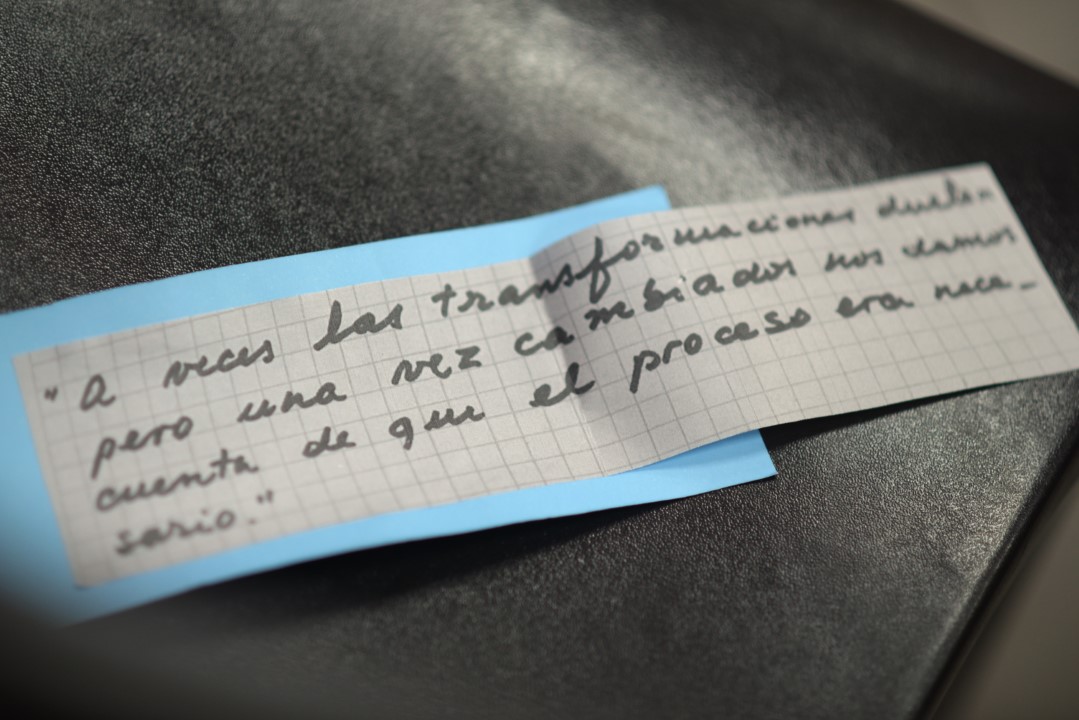 "A veces las transformaciones duelen
pero una vez cambiados nos damos
cuenta de que el proceso era nece_
sario."